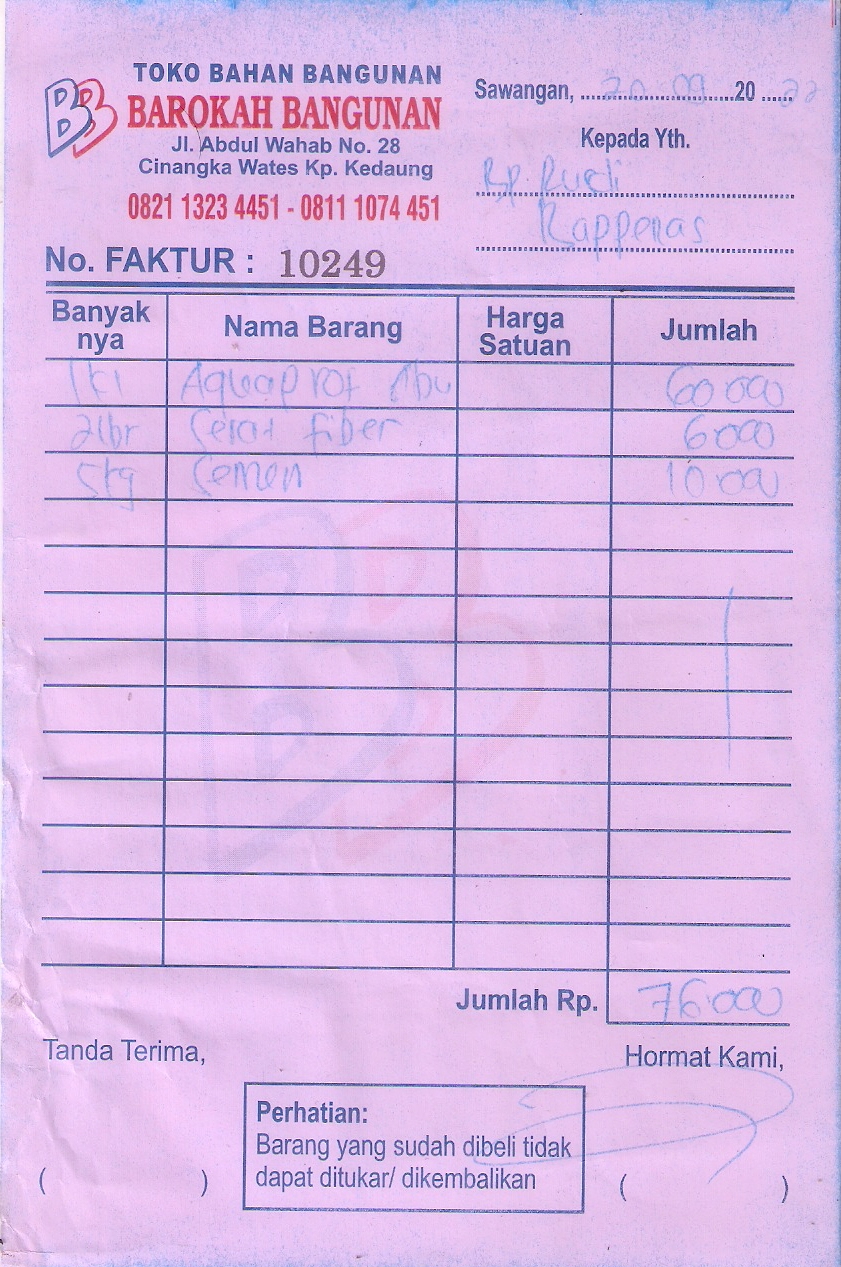 BB
TOKO BAHAN BANGUNAN
BAROKAH BANGUNAN
Jl. Abdul Wahab No. 28
Cinangka Wates Kp. Kedaung
0821 1323 4451 - 0811 1074 451
No. FAKTUR : 10249
Sawangan, 20 09 20 22
Kepada Yth.
Bp. Rudi
Bappenas
Banyak nya Nama Barang Harga Satuan Jumlah
Aquaprof Abu 60.000
2lbr Serat fiber 6.000
5kg Semen 10.000
Jumlah Rp. 76.000
Tanda Terima,
Hormat Kami,
Perhatian:
Barang yang sudah dibeli tidak
dapat ditukar/ dikembalikan
( )
( )